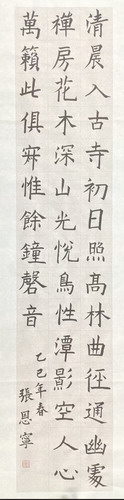 清晨入古寺初日照高林曲徑通幽處
禪房花木深山光悅鳥性潭影空人心
萬籟此俱寂惟餘鐘磬音
乙巳年春
張恩寧